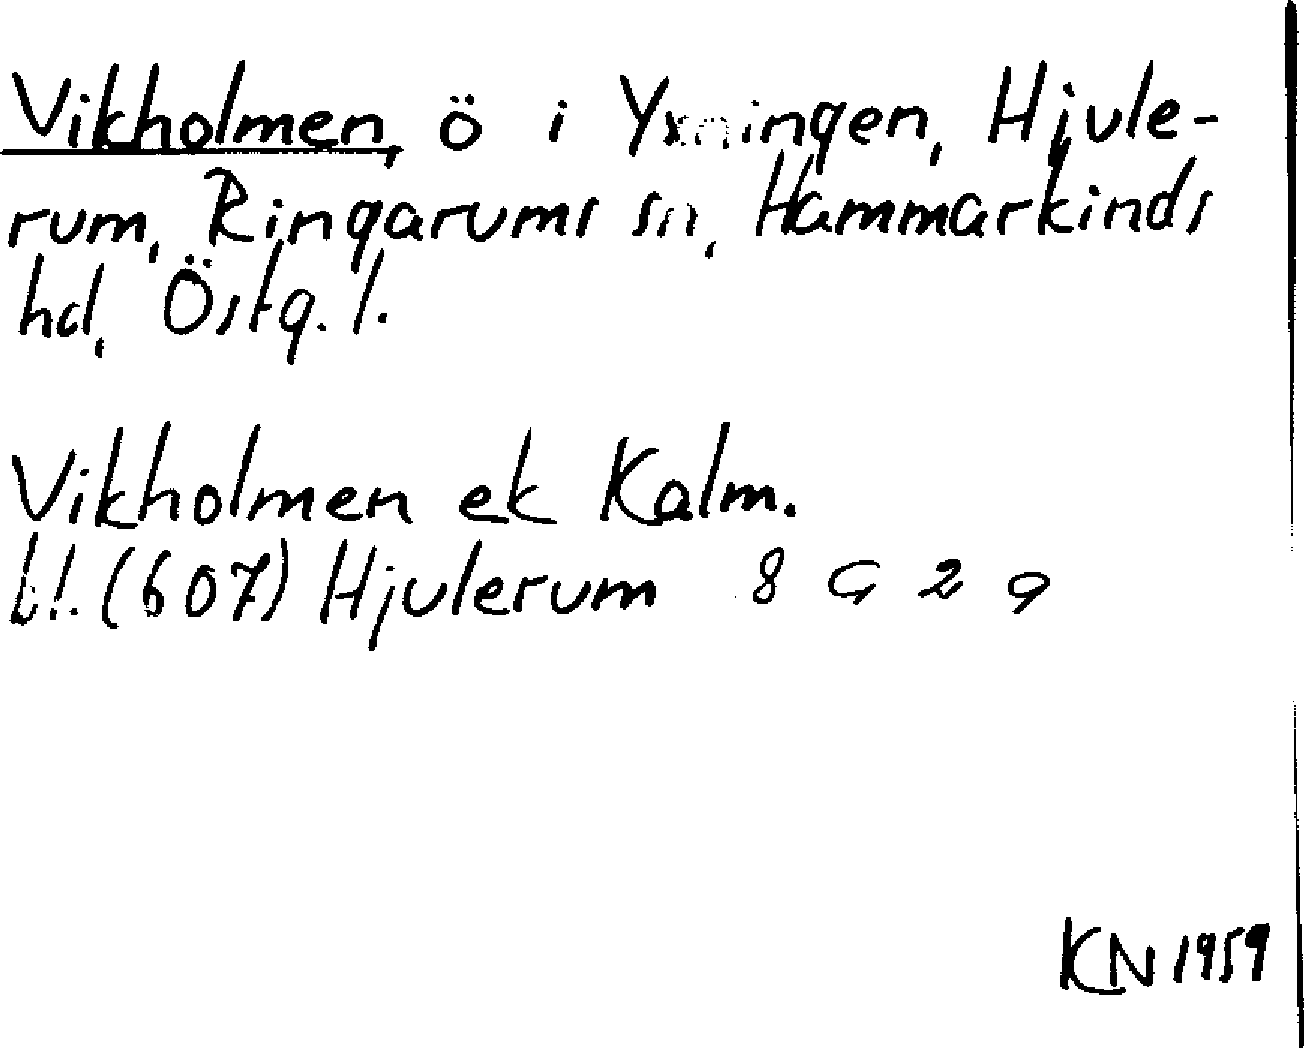 Vikholmen, ö i Yxningen, Hjule-
rum, Ringarums sn, Hammarkinds
hd, Östg. l.
Vikholmen ek Kalm.
bl. (607) Hjulerum 8 G 2 g
KN 1959